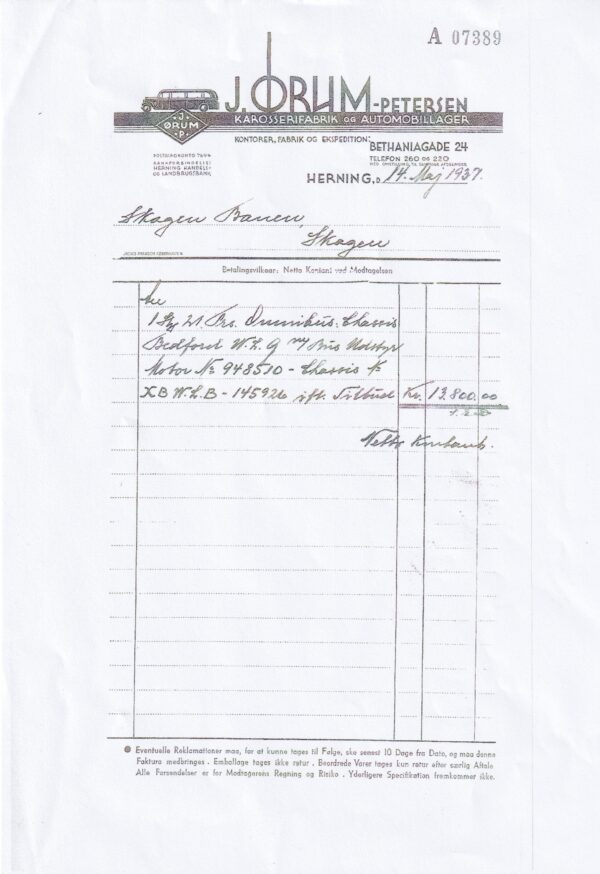 A 07389
J. ØRUM-PETERSEN
KAROSSERIFABRIK OG AUTOMOBILLAGER
J.
ØRUM
P.
KONTORER, FABRIK OG EKSPEDITION:
BETHANIAGADE 24
TELEFON 260 OG 220
BANKFORBINDELSE:
HERNING HANDELS-
OG LANDBRUGSBANK
HERNING, D. 14. Maj 1937.
Skagen Banen,
Skagen
Betalingsvilkaar: Netto Kontant ved Modtagelsen
1 Stk 21 Prs. Omnibus, Chassis
Bedford W.L.G. ny Bus Udstyr
Motor No 948510 - Chassis
XB W.L.B - 145926 ifl. Tilbud Kr. 12.800.00
Netto Kontant.
Eventuelle Reklamationer maa, for at kunne tages til Følge, ske senest 10 Dage fra Dato, og maa denne
Faktura medbringes . Emballage tages ikke retur . Beordrede Varer tages kun retur efter særlig Aftale
Alle Forsendelser er for Modtagerens Regning og Risiko . Yderligere Specifikation fremkommer ikke.